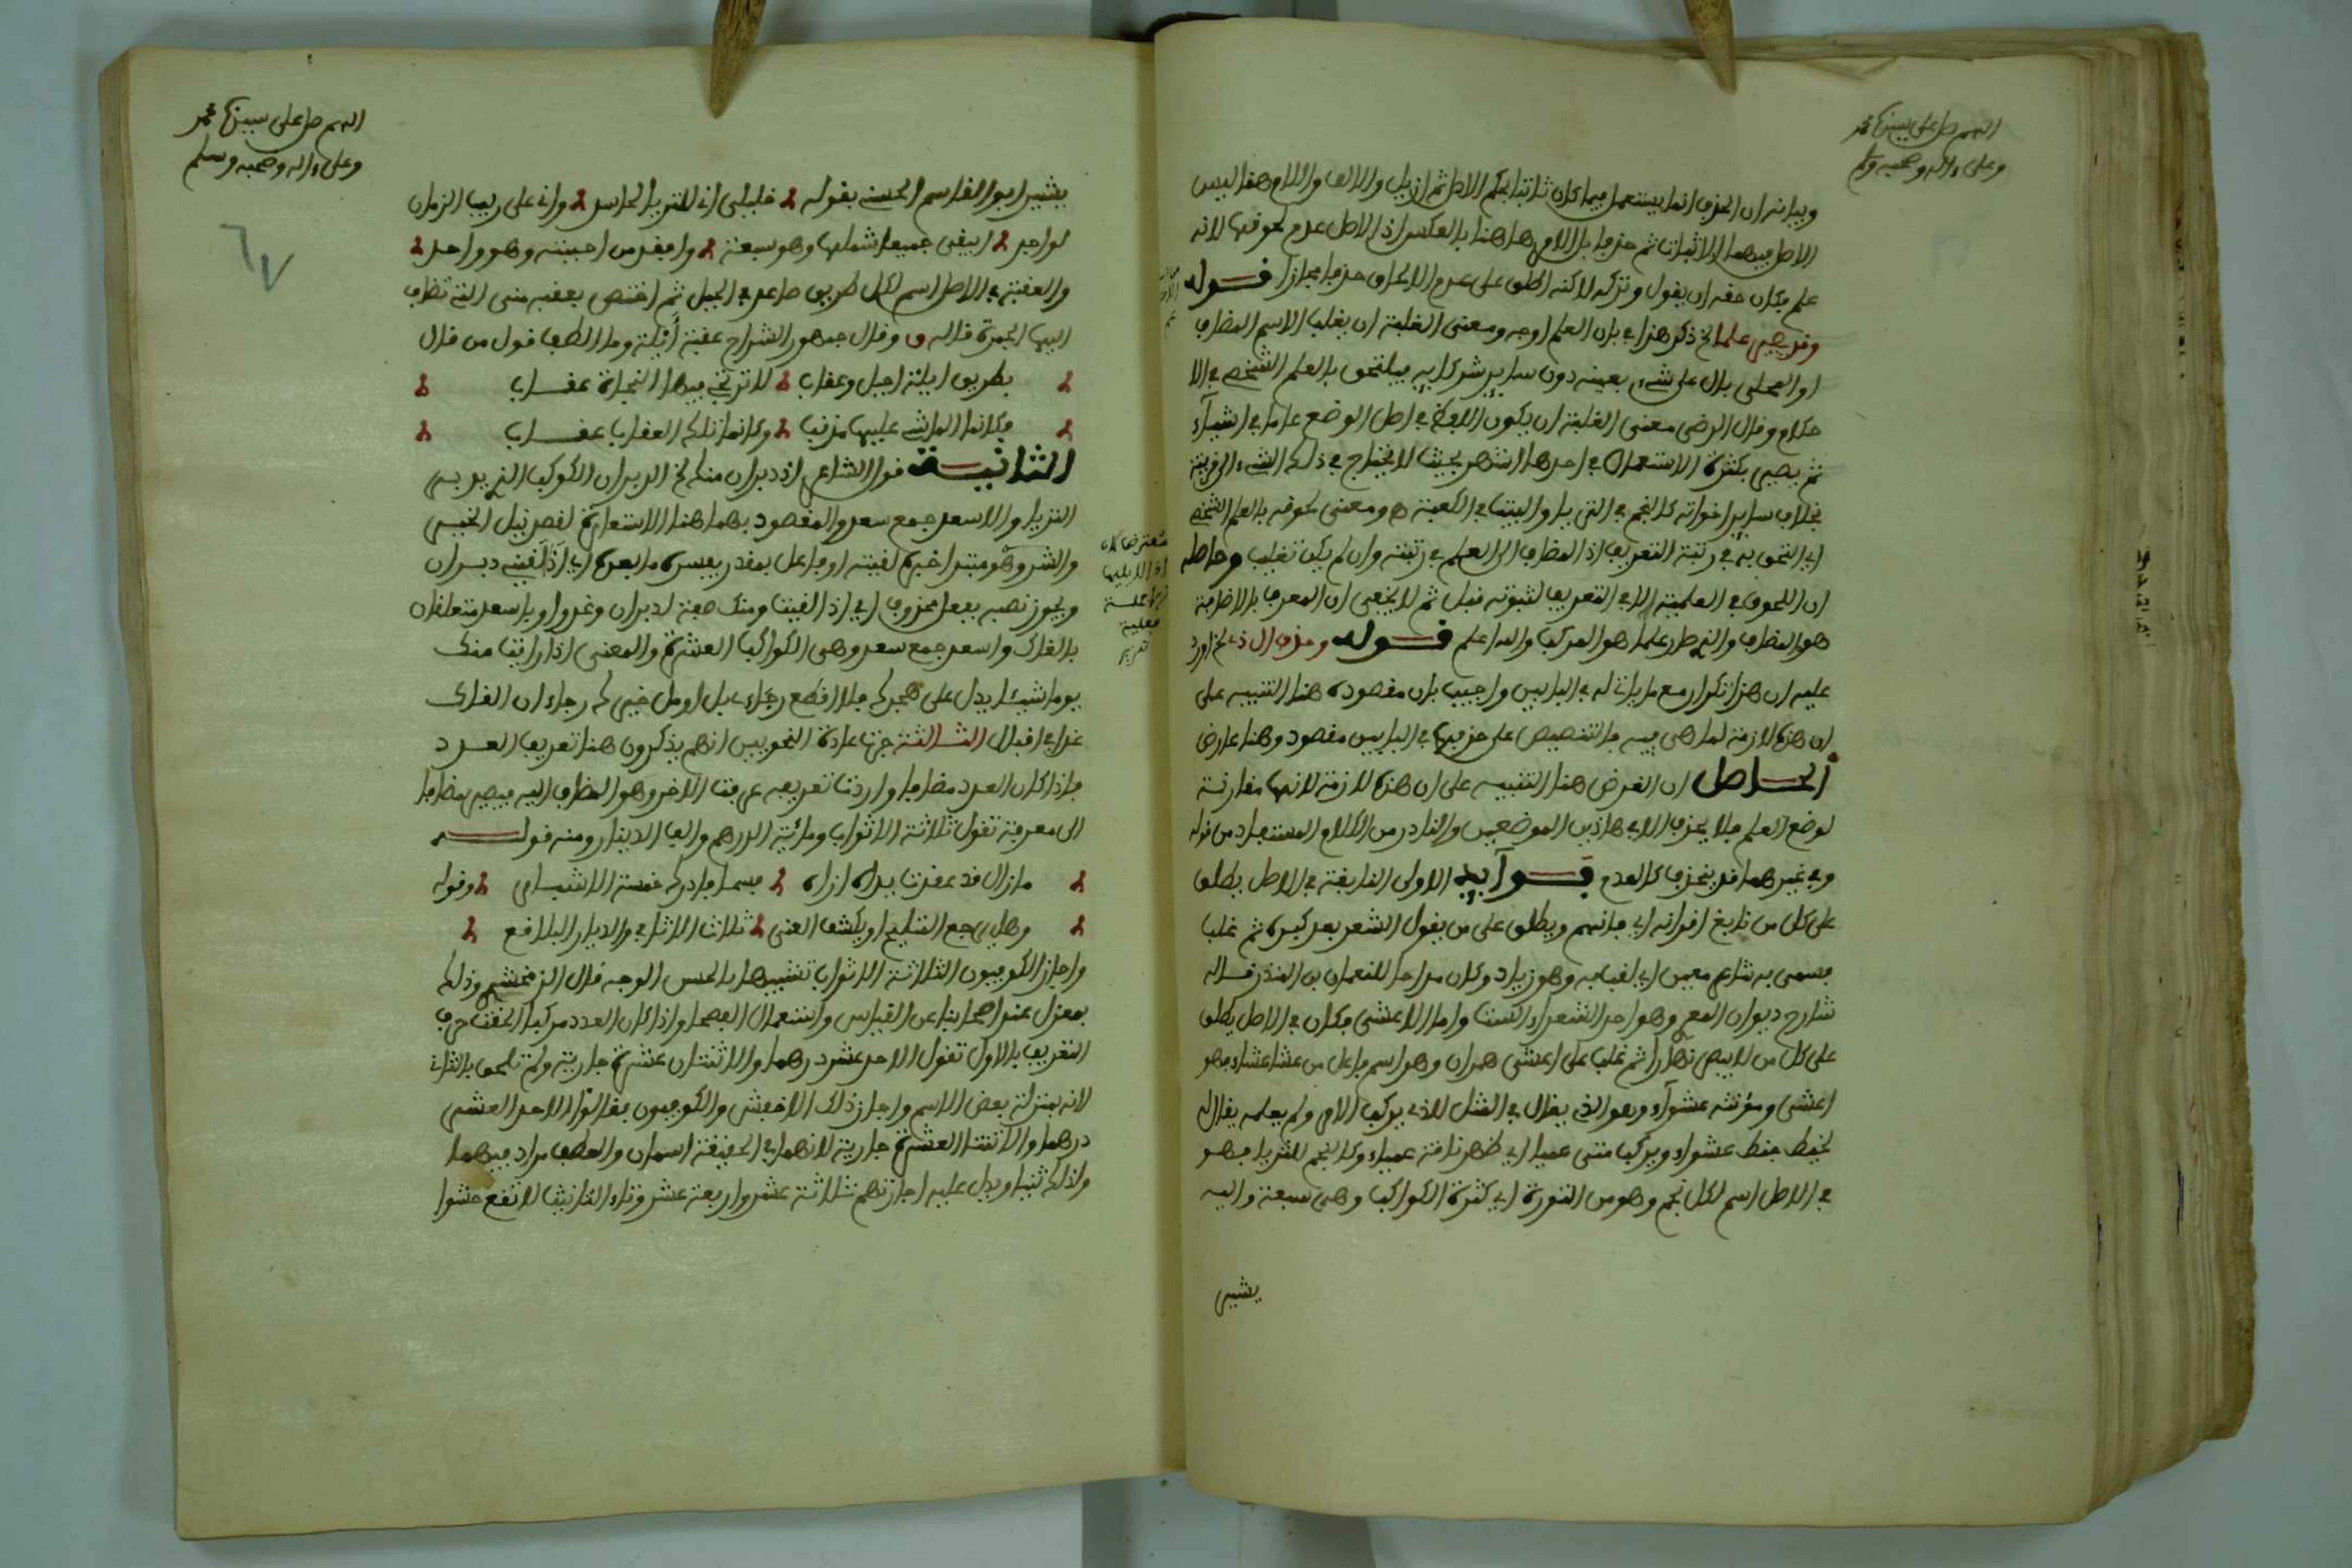 اللهم صل على سيدنا محمد
وعلى ءاله وصحبه وسلم
وبيانه ان الحذف انما يستعمل فيما كان ثابتا بحكم الاصل ثم ازيل والالف واللام هنا ليس
الاصل فيهما الاثبات ثم حذفا بل الامر هاهنا بالعكس اذ الاصل عدم لحوقها لانه
علم فكان حقه ان يقول وتركه لاكنه اطلق على عدم الالحاق حذفا مجازا قوله
وقد يصير علما الخ ذكر هذا في باب العلم اوجه ومعنى الغلبة ان يغلب الاسم المضاف
او المحلى بال على شيء بعينه دون ساير شركايه فيلتحق بالعلم الشخصي في الا
حكام وقال الرضى معنى الغلبة ان يكون اللفظ في اصل الوضع عاما في اشياء
ثم يصير بكثرة الاستعمال في احدها اشهر بحيث لا يحتاج في ذلك الشيء الى قرينة
بخلاف ساير اخواته كالنجم في الثريا والبيت في الكعبة ه ومعنى لحوقه بالعلم الشخصي
اي التحق به في رتبة التعريف اذ المضاف الى العلم في رتبته وان لم يكن تغليب وحاصله
ان اللحوق في العلمية لا في التعريف لثبوته قبل ثم لا يخفى ان المعرف بالاضافة
هو المضاف والذي صار علما هو المركب والله اعلم قوله وحذف ال ذي الخ اورد
عليه ان هذا تكرار مع ما ياتي له في البابين واجيب بان مقصوده هنا التنبيه على
ان هذه لازمة لما هي فيه فالتنصيص على حذفها في البابين مقصود وهنا عارض
الحاصل ان الغرض هنا التنبيه على ان هذه لازمة لانها مقارنة
لوضع العلم فلا يحذف الا في هاذين الموضعين والنادر من الكلام المستفاد من قوله
وفي غيرهما قد ينحذف كالعدم فوايد الاولى النابغة في الاصل يطلق
على كل من نابغ اقرانه اي فاتهم ويطلق على من يقول الشعر بعد كبره ثم غلب
فسمى به شاعر معين اي لقب به وهو زياد وكان مداحا للنعمان بن المنذر قاله
شارح ديوان المعر وهو احد الشعراء الستة واما الاعشى فكان في الاصل يطلق
على كل من لا يبصر نهارا ثم غلب على اعشى همدان وهو اسم فاعل من عشا عشاء فهو
اعشى ومؤنثه عشواء وهو الذي يقال في المثل للذي يركب الامر ولم يعلمه يقال له
يخبط خبط عشواء ويركب متن عميا اي ظهر ناقة عمياء وكالنجم للثريا فهو
في الاصل اسم لكل نجم وهو من الثورة اي كثرة الكواكب وهي سبعة واليه
يشير
اللهم صل على سيدنا محمد
وعلى ءاله وصحبه وسلم
٦٧
يشير ابو القاسم الحسنى بقوله خليلي اني للثريا لحاسد واني على ريب الزمان
لواجد ايبقى جميعا شملها وهو سبعة وافقد من احببته وهو واحد
والعقبة في الاصل اسم لكل طريق صاعد في الجبل ثم اختص بعقبة منى التي تضاف
اليها الجمرة قاله وقال جمهور الشراح عقبة أيلة وما الطف قول من قال
بطريق ايلة اجبل وعقاب لا ترتجى فيها النجاة عقاب
فكانما الماشي عليها مذنب وكانما تلك العقاب عقاب
الثانية قول الشاعر اذ دبران منك الخ الدبران الكوكب الذي يدبر
الثريا والاسعد جمع سعد والمقصود بهما هنا الاستعارة لقصد نيل الخير
والشر وهو مبتدا خبره لقيته او فاعل بمقدر يفسره ما بعده اي اذا لقيته دبران
ويجوز نصبه بفعل محذوف اي اذ القيت ومنك صفة لدبران وغدوا وباسعد متعلقان
بالقاك واسعد جمع سعد وهي الكواكب العشرة والمعنى اذا رايت منك
يوما شيئا يدل على هجرك فلا اقطع رجاءي بل اومل خيرك رجاء ان القاك
غدا في اقبال الثالثة جرت عادة النحويين انهم يذكرون هنا تعريف العدد
فاذا كان العدد مضافا واردت تعريفه عرفت الاخر وهو المضاف اليه فيصير مضافا
الى معرفة تقول ثلاثة الاثواب ومائة الدرهم والف الدينار ومنه قوله
ما زال قد عقدت يداه ازاره فسما فادرك خمسة الاشبار وقوله
وهل يرجع التسليم او يكشف العنى ثلاث الاثافي والديار البلاقع
واجاز الكوفيون الثلاثة الاثواب تشبيها بالحسن الوجه قال الزمخشري وذلك
بمعزل عند اصحابنا عن القياس واستعمال الفصحا واذا كان العدد مركبا الحقت حرف
التعريف بالاول تقول الاحد عشر درهما والاثنتان عشرة جارية ولم تلحق بالثاني
لانه بمنزلة بعض الاسم واجاز ذلك الاخفش والكوفيون فقالوا الاحد العشر
درهما والاثنتا العشرة جارية لانهما في الحقيقة اسمان والعطف مراد فيهما
ولذلك ثنيا ويدل عليه اجازتهم ثلاثة عشر واربعة عشر وتاء التانيث لا تقع حشوا